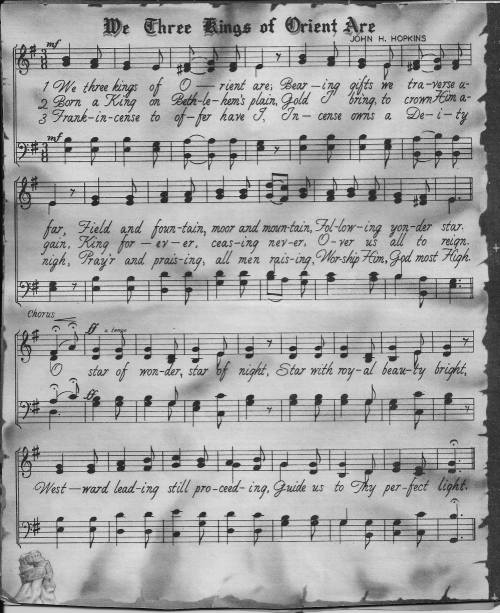 We Three Kings of Orient Are
JOHN H. HOPKINS
mf
1 We three kings of O-rient are; Bear-ing gifts we tra-verse a-
2 Born a King on Beth-le-hem's plain, Gold I bring, to crown Him a-
3 Frank-in-cense to of-fer have I, In-cense owns a De-i-ty
mf
far, Field and foun-tain, moor and moun-tain, Fol-low-ing yon-der star.
gain, King for-ev-er, ceas-ing nev-er, O-ver us all to reign.
nigh, Pray'r and prais-ing, all men rais-ing, Wor-ship Him, God most High.
Chorus
ff a tempo
O star of won-der, star of night, Star with roy-al beau-ty bright,
ff
West-ward lead-ing still pro-ceed-ing, Guide us to Thy per-fect light.